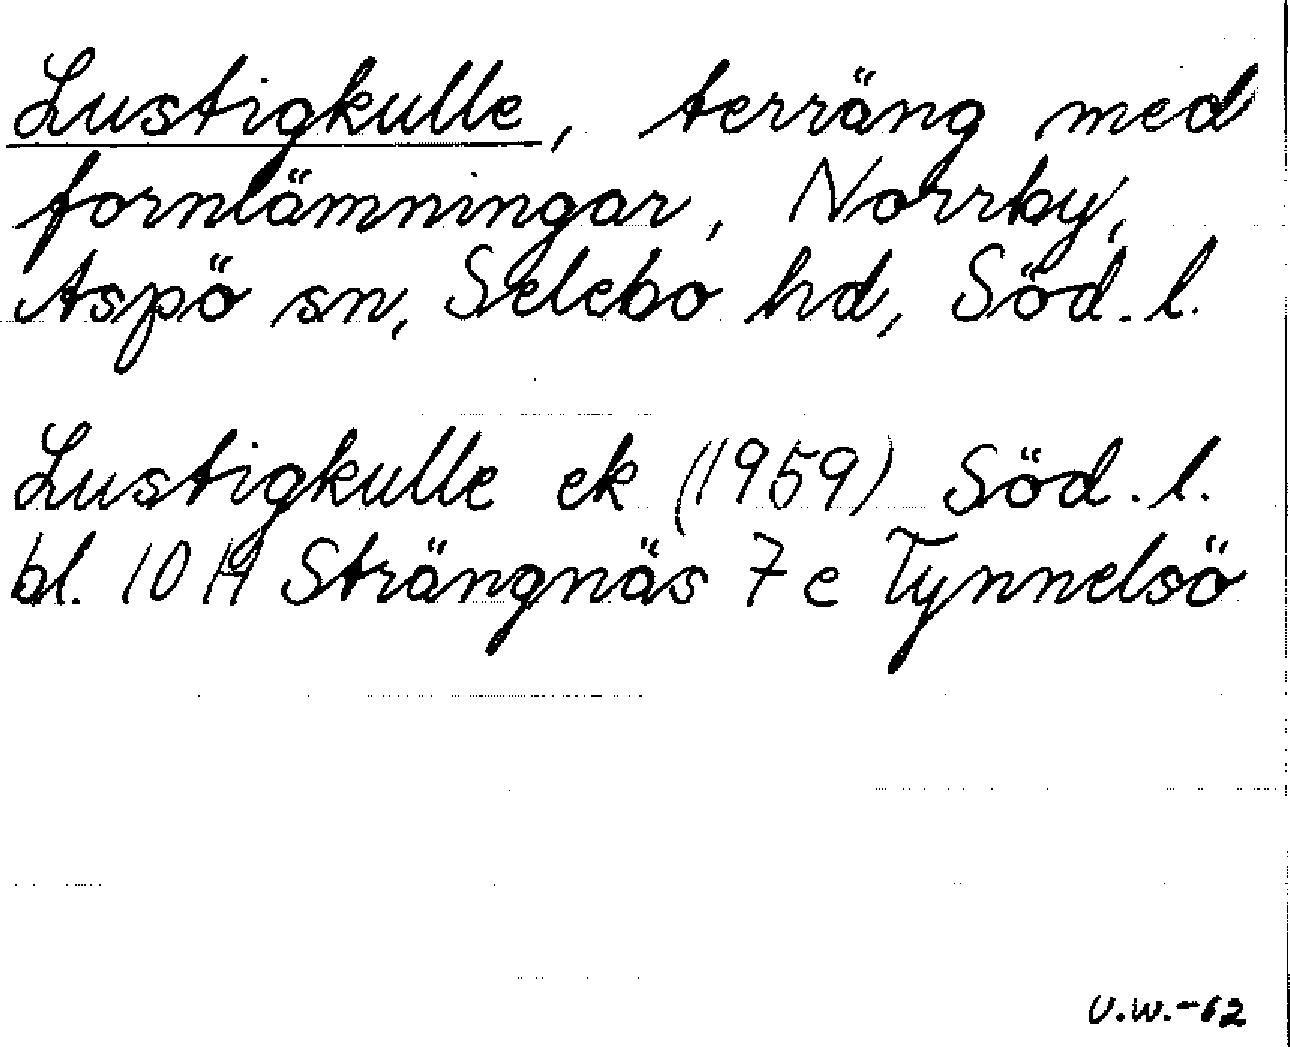 Lustigkulle, terräng med
fornlämningar, Norrby,
Aspö sn, Selebo hd, Söd. l.
Lustigkulle ek (1959) Söd. l.
bl. 10 H Strängnäs 7 e Tynnelsö
U.W.-62